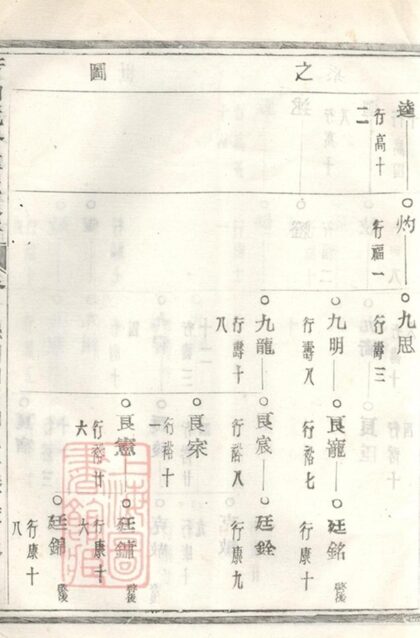 之圖
逵
行高十二
灼
行福一
九思
行壽三
九明
行壽八
良寵
行裕七
廷銘
行康十
九龍
行壽十八
良宸
行裕八
廷銓
行康九
良寀
行裕十一
良憲
行裕廿六
廷
行康十六
廷錦
行康十八
上海圖書館藏